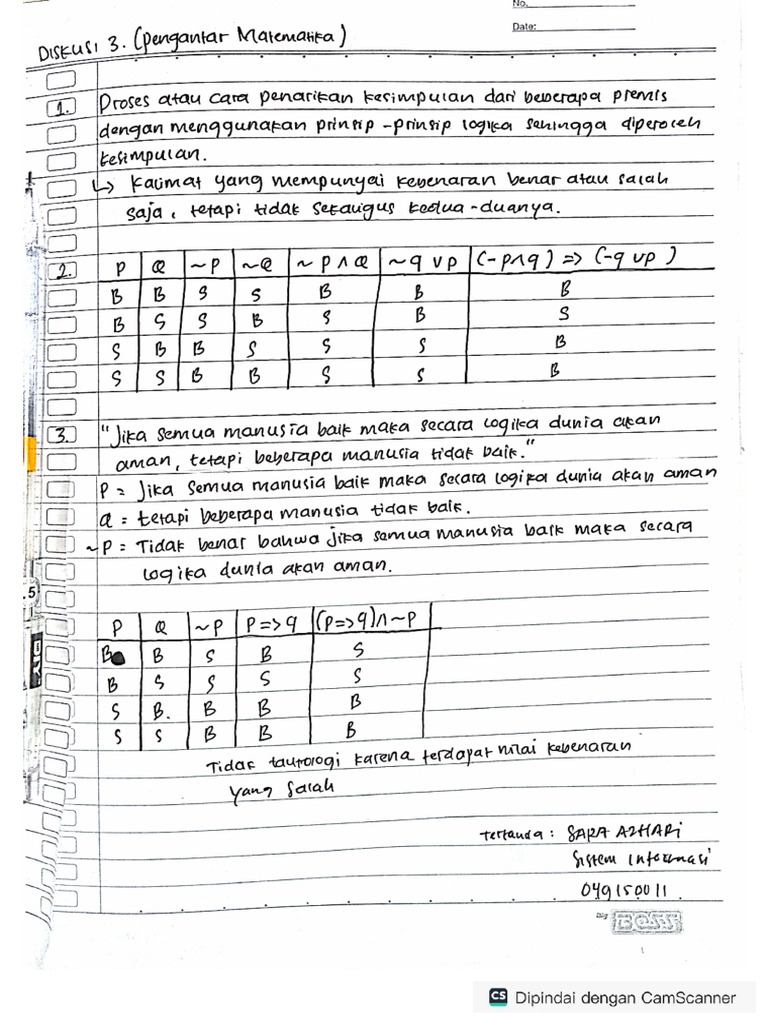 No.
Date:
DISKUSI 3. (Pengantar Matematika)
1. Proses atau cara penarikan kesimpulan dari beberapa premis
dengan menggunakan prinsip-prinsip logika sehingga diperoleh
kesimpulan.
↳ Kalimat yang mempunyai kebenaran benar atau salah
saja, tetapi tidak sekaligus kedua-duanya.
2. P Q ~P ~Q ~P∧Q ~q ∨p (-p∧q) => (-q ∨p)
B B S S B B B
B S S B S B S
S B B S S S B
S S B B S S B
3. "Jika semua manusia baik maka secara logika dunia akan
aman, tetapi beberapa manusia tidak baik."
P = Jika semua manusia baik maka secara logika dunia akan aman
Q = tetapi beberapa manusia tidak baik.
~P = Tidak benar bahwa jika semua manusia baik maka secara
logika dunia akan aman.
P Q ~P P=>q (P=>q)∧~P
B B S B S
B S S S S
S B. B B B
S S B B B
Tidak tautologi karena terdapat nilai kebenaran
yang salah
tertanda : SARA AZHARi
Sistem Informasi
049150011.
CS Dipindai dengan CamScanner